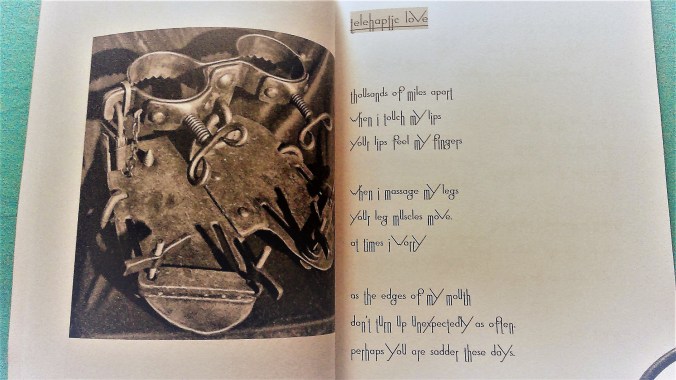 telehaptic love
thousands of miles apart
when i touch my lips
your lips feel my fingers
when i massage my legs
your leg muscles move.
at times i worry
as the edges of my mouth
don't turn up unexpectedly as often;
perhaps you are sadder these days.